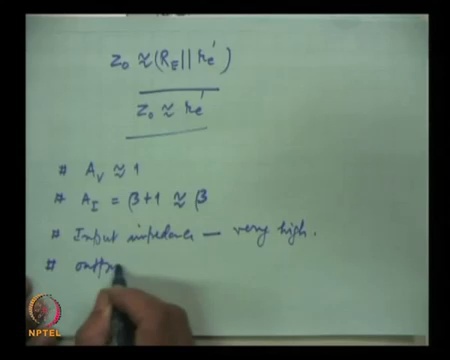 Z₀ ≈ (R_E || r_e')
Z₀ ≈ r_e'
# A_V ≈ 1
# A_I = β+1 ≈ β
# Input impedance — very high.
# outp
NPTEL